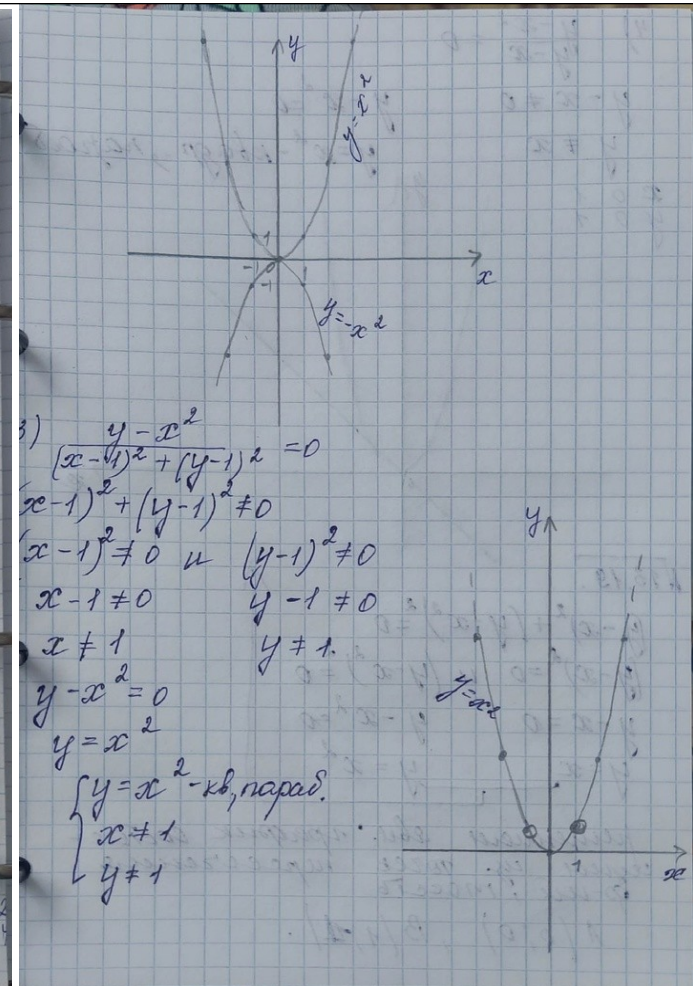 y
y=x²
1
-1 0 1
-1
x
y=-x²
3) (y-x²)/((x-1)²+(y-1)²) =0
(x-1)²+(y-1)²≠0
(x-1)²≠0 и (y-1)²≠0
x-1≠0 y-1≠0
x≠1 y≠1.
y-x²=0
y=x²
{ y=x²-кв, параб.
x≠1
y≠1
y
y=x²
1
x